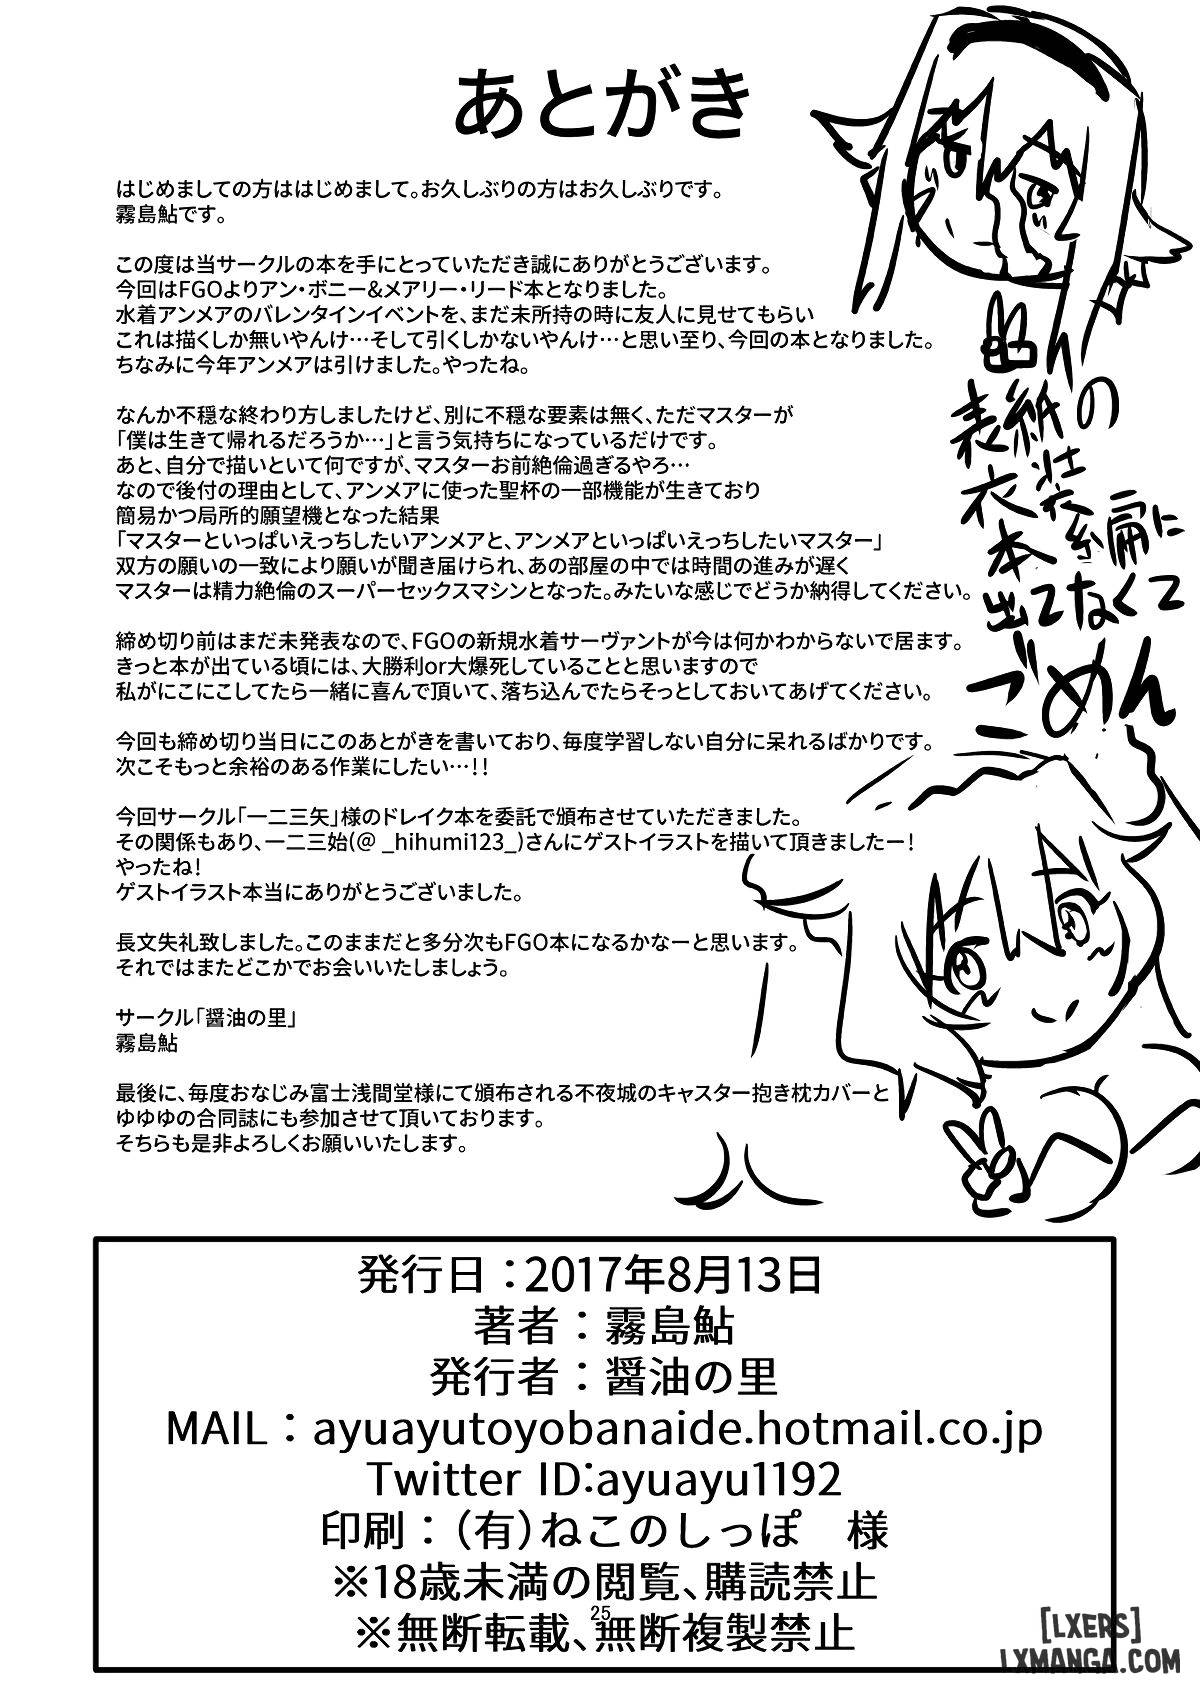 あとがき
はじめましての方ははじめまして。お久しぶりの方はお久しぶりです。
霧島鮎です。
この度は当サークルの本を手にとっていただき誠にありがとうございます。
今回はFGOよりアン・ボニー&メアリー・リード本となりました。
水着アンメアのバレンタインイベントを、まだ未所持の時に友人に見せてもらい
これは描くしか無いやんけ…そして引くしかないやんけ…と思い至り、今回の本となりました。
ちなみに今年アンメアは引けました。やったね。
なんか不穏な終わり方しましたけど、別に不穏な要素は無く、ただマスターが
「僕は生きて帰れるだろうか…」と言う気持ちになっているだけです。
あと、自分で描いといて何ですが、マスターお前絶倫過ぎるやろ…
なので後付の理由として、アンメアに使った聖杯の一部機能が生きており
簡易かつ局所的願望機となった結果
「マスターといっぱいえっちしたいアンメアと、アンメアといっぱいえっちしたいマスター」
双方の願いの一致により願いが聞き届けられ、あの部屋の中では時間の進みが遅く
マスターは精力絶倫のスーパーセックスマシンとなった。みたいな感じでどうか納得してください。
締め切り前はまだ未発表なので、FGOの新規水着サーヴァントが今は何かわからないで居ます。
きっと本が出ている頃には、大勝利or大爆死していることと思いますので
私がにこにこしてたら一緒に喜んで頂いて、落ち込んでたらそっとしておいてあげてください。
今回も締め切り当日にこのあとがきを書いており、毎度学習しない自分に呆れるばかりです。
次こそもっと余裕のある作業にしたい…!!
今回サークル「一二三矢」様のドレイク本を委託で頒布させていただきました。
その関係もあり、一二三始(@ _hihumi123_)さんにゲストイラストを描いて頂きましたー!
やったね!
ゲストイラスト本当にありがとうございました。
長文失礼致しました。このままだと多分次もFGO本になるかなーと思います。
それではまたどこかでお会いいたしましょう。
サークル「醤油の里」
霧島鮎
最後に、毎度おなじみ富士浅間堂様にて頒布される不夜城のキャスター抱き枕カバーと
ゆゆゆの合同誌にも参加させて頂いております。
そちらも是非よろしくお願いいたします。
表紙の
衣装
本編に
出てなくて
ごめん
発行日：2017年8月13日
著者：霧島鮎
発行者：醤油の里
MAIL：ayuayutoyobanaide.hotmail.co.jp
Twitter ID:ayuayu1192
印刷：（有）ねこのしっぽ　様
※18歳未満の閲覧、購読禁止
※無断転載、無断複製禁止
25
[LXERS]
LXMANGA.COM